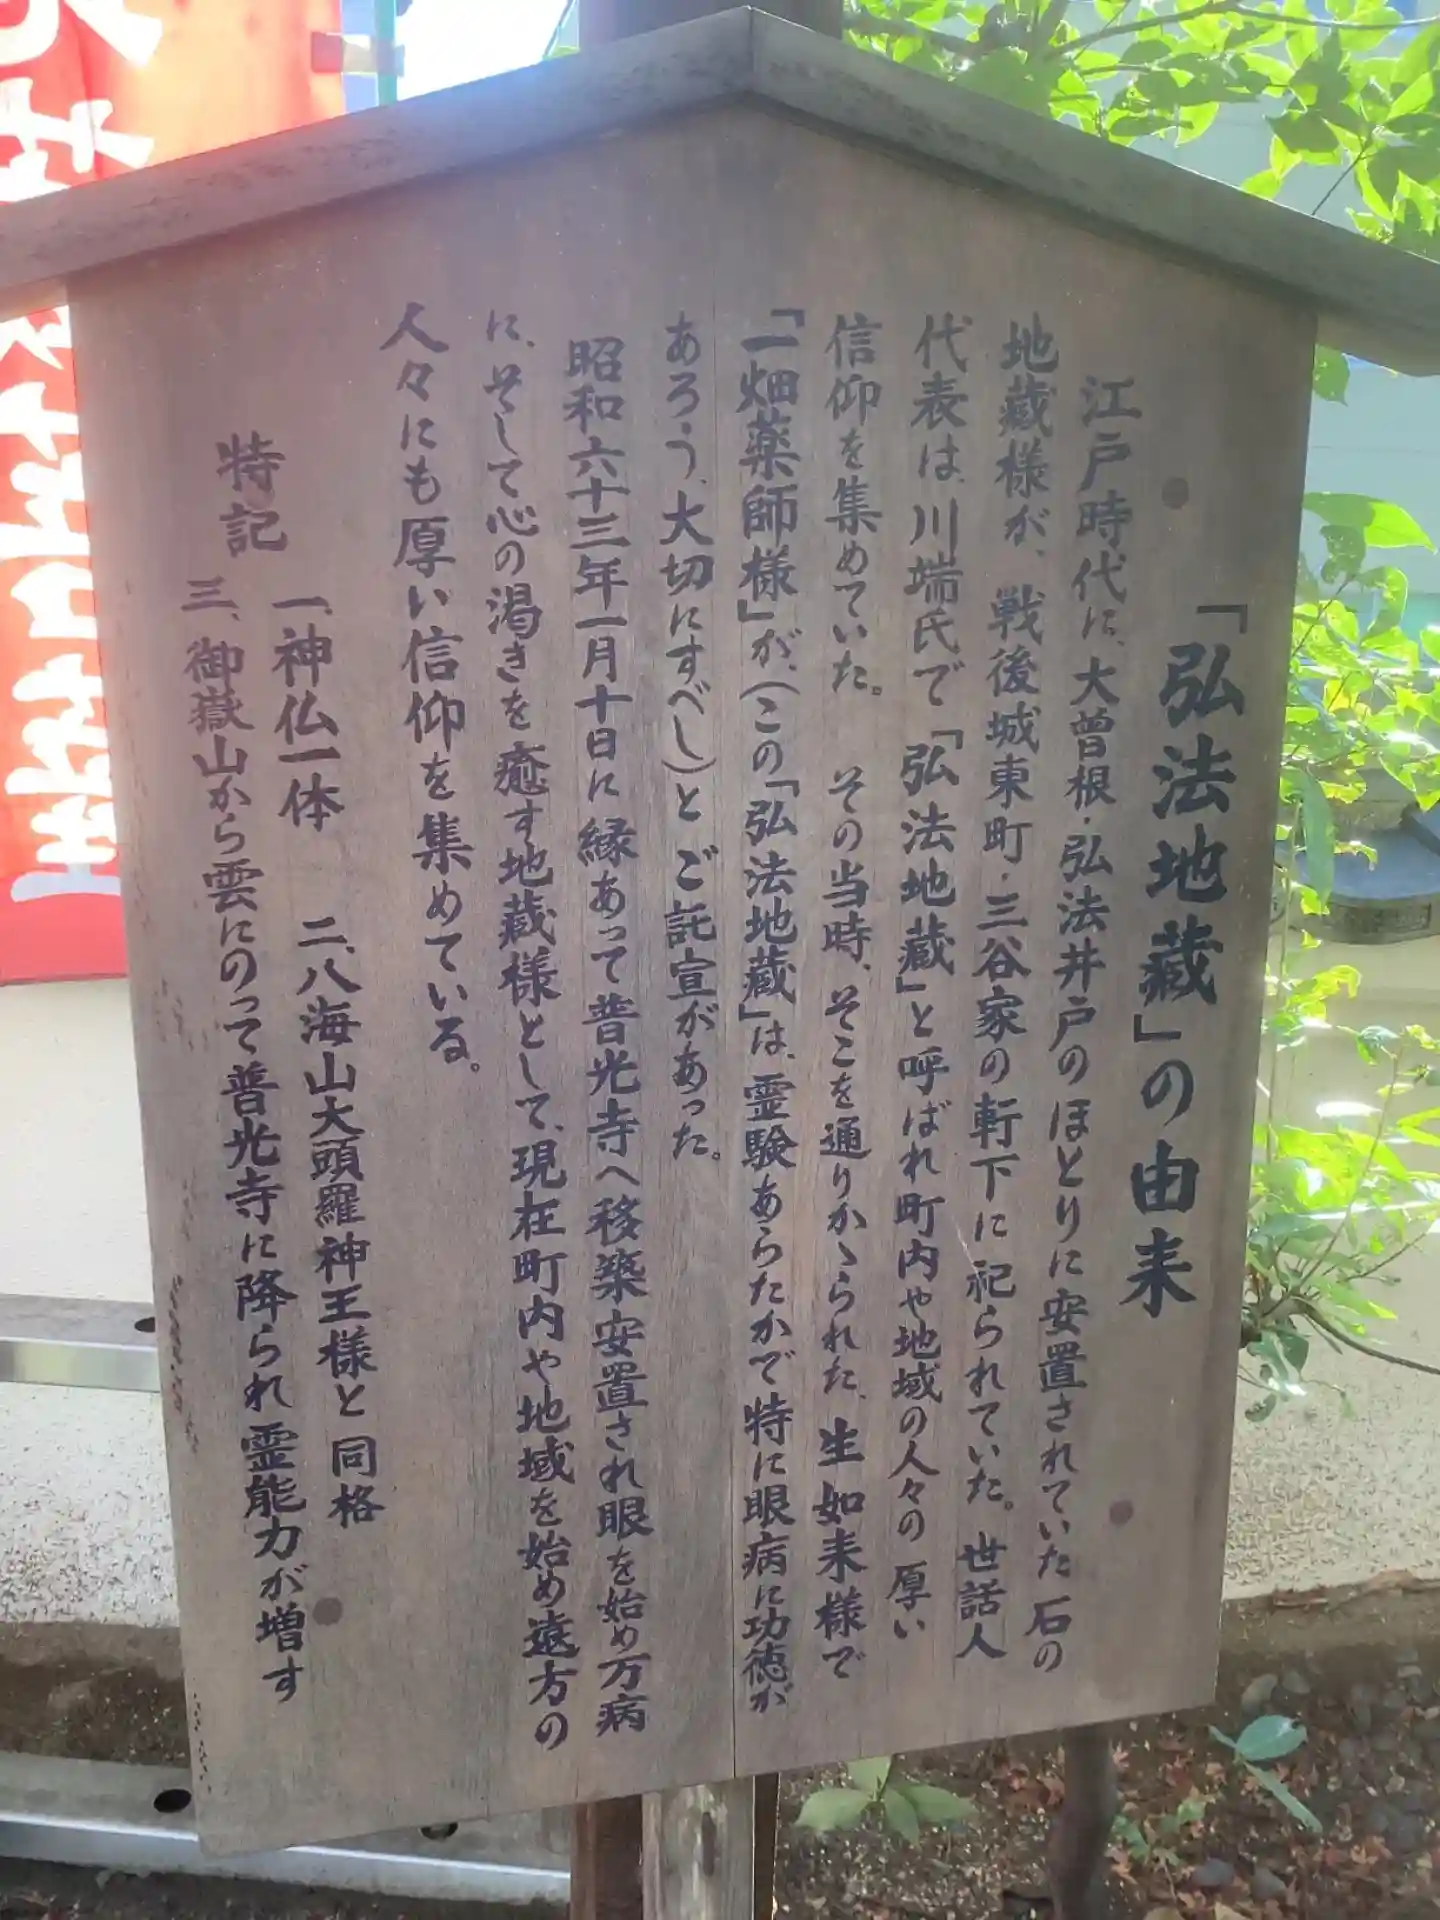 「弘法地蔵」の由来
江戸時代に、大曽根・弘法井戸のほとりに安置されていた石の
地蔵様が、戦後城東町・三谷家の軒下に祀られていた。世話人
代表は、川端氏で「弘法地蔵」と呼ばれ町内や地域の人々の厚い
信仰を集めていた。その当時、そこを通りかゝられた、生如来様で
「一畑薬師様」が、(この「弘法地蔵」は、霊験あらたかで特に眼病に功徳が
あろう、大切にすべし)とご託宣があった。
昭和六十三年一月十日に縁あって普光寺へ移築安置され眼を始め万病
に、そして心の渇きを癒す地蔵様として、現在町内や地域を始め遠方の
人々にも厚い信仰を集めている。
特記
一、神仏一体 二、八海山大頭羅神王様と同格
三、御嶽山から雲にのって普光寺に降られ霊能力が増す